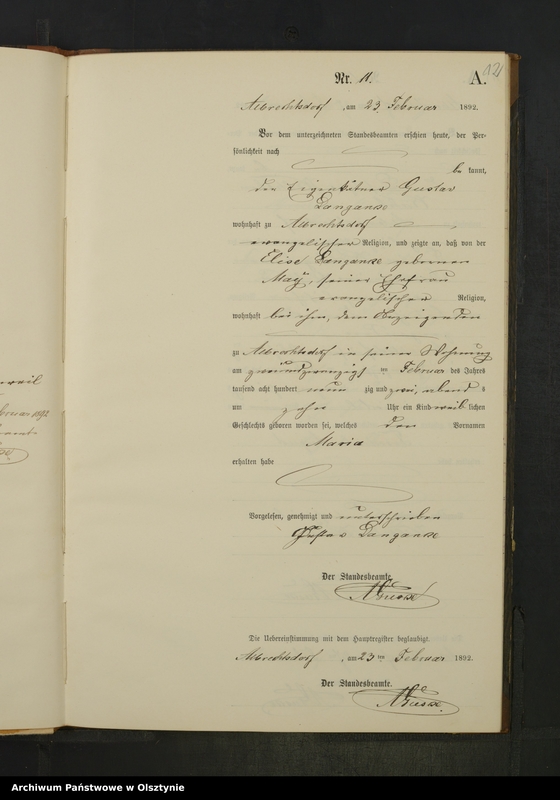 121
Nr. 11.
A.
Albrechtsdorf, am 23. Februar 1892.
Vor dem unterzeichneten Standesbeamten erschien heute, der Per-
sönlichkeit nach
be kannt,
der Eigenkätner Gustav
Langanke
wohnhaft zu Albrechtsdorf,
evangelischer Religion, und zeigte an, daß von der
Elise Langanke geborenen
May, seiner Ehefrau
evangelischer Religion,
wohnhaft bei ihm, dem Anzeigenden
zu Albrechtsdorf in seiner Wohnung
am zweiundzwanzigsten Februar des Jahres
tausend acht hundert neun zig und zwei, abend s
um zehn Uhr ein Kind weib lichen
Geschlechts geboren worden sei, welches den Vornamen
Maria
erhalten habe
Vorgelesen, genehmigt und unterschrieben
Gustav Langanke
Der Standesbeamte.
Die Uebereinstimmung mit dem Hauptregister beglaubigt.
Albrechtsdorf, am 23 ten Februar 1892.
Der Standesbeamte.
Archiwum Państwowe w Olsztynie